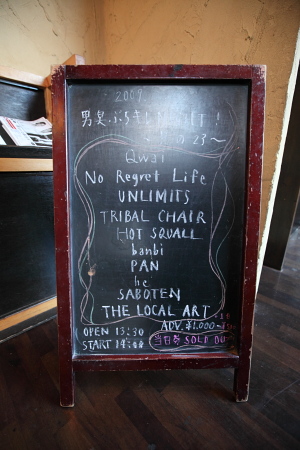 2009
男臭
23～
Qwai
No Regret Life
UNLIMITS
TRIBAL CHAIR
HOT SQUALL
banbi
PAN
he
SABOTEN
THE LOCAL ART
OPEN 13:30 ADV. ¥1.000-
START 14:00 当日券 SOLD OUT